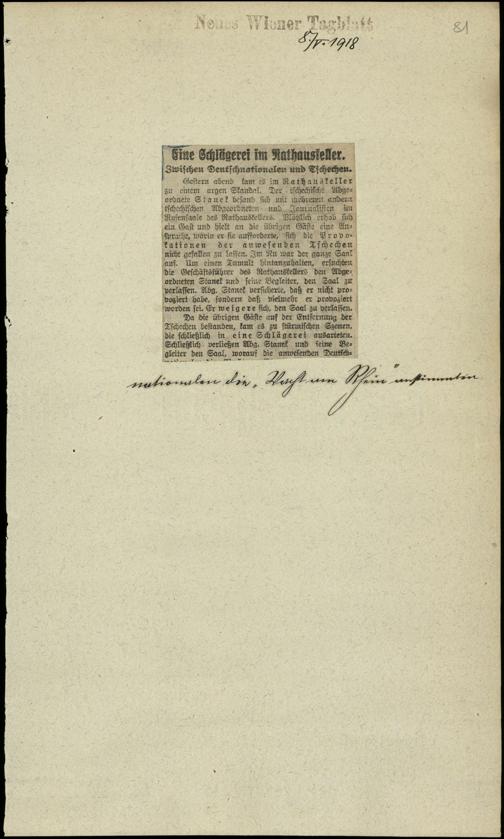 Neues Wiener Tagblatt
81
8/V. 1918
Eine Schlägerei im Rathauskeller.
Zwischen Deutschnationalen und Tschechen.
Gestern abend kam es im Rathauskeller
zu einem argen Skandal. Der tschechische Abge-
ordnete Stanek befand sich mit mehreren andern
tschechischen Abgeordneten und Journalisten im
Rosensaale des Rathauskellers. Plötzlich erhob sich
ein Gast und hielt an die übrigen Gäste eine An-
sprache, worin er sie aufforderte, sich die Provo-
kationen der anwesenden Tschechen
nicht gefallen zu lassen. Im Nu war der ganze Saal
auf. Um einen Tumult hintanzuhalten, ersuchten
die Geschäftsführer des Rathauskellers den Abge-
ordneten Stanek und seine Begleiter, den Saal zu
verlassen. Abg. Stanek versicherte, daß er nicht pro-
voziert habe, sondern daß vielmehr er provoziert
worden sei. Er weigere sich, den Saal zu verlassen.
Da die übrigen Gäste auf der Entfernung der
Tschechen bestanden, kam es zu stürmischen Szenen,
die schließlich in eine Schlägerei ausarteten.
Schließlich verließen Abg. Stanek und seine Be-
gleiter den Saal, worauf die anwesenden Deutsch-
nationalen die „Wacht am Rhein" anstimmten.